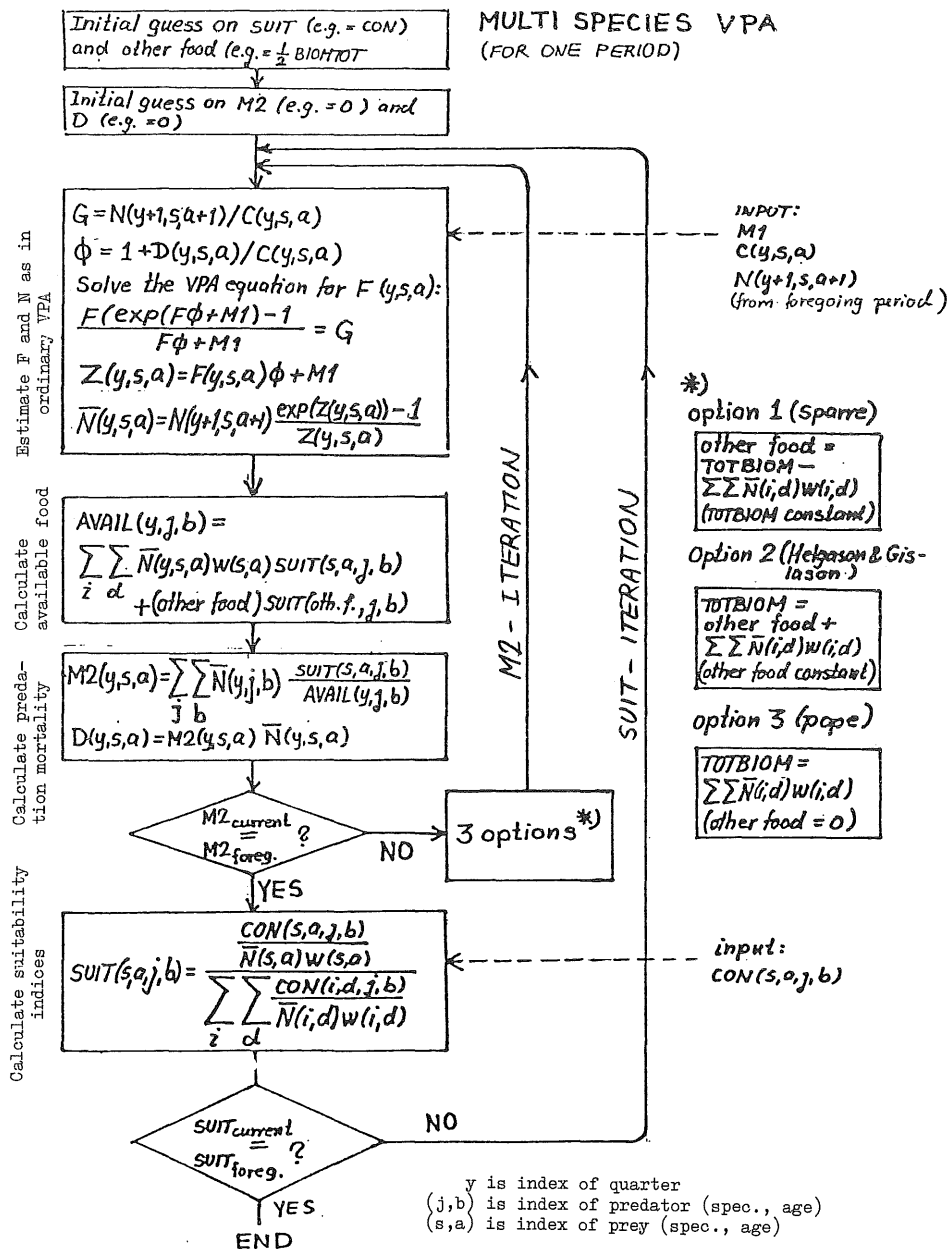 MULTI SPECIES VPA
(FOR ONE PERIOD)
Initial guess on SUIT (e.g. = CON)
and other food (e.g. = 1/2 BIOMTOT
Initial guess on M2 (e.g. =0) and
D (e.g. =0)
Estimate F and N as in
ordinary VPA
G = N(y+1,s,a+1)/C(y,s,a)
ϕ = 1+D(y,s,a)/C(y,s,a)
Solve the VPA equation for F(y,s,a):
F(exp(Fϕ+M1)-1
Fϕ+M1
= G
Z(y,s,a)=F(y,s,a)ϕ+M1
N̄(y,s,a)=N(y+1,s,a+1) exp(Z(y,s,a))-1
Z(y,s,a)
INPUT:
M1
C(y,s,a)
N(y+1,s,a+1)
(from foregoing period)
Calculate
available food
AVAIL(y,j,b) =
∑ ∑ N̄(y,s,a)w(s,a) SUIT(s,a,j,b)
i d
+(other food) SUIT(oth.f.,j,b)
Calculate preda-
tion mortality
M2(y,s,a)=∑∑N̄(y,j,b) SUIT(s,a,j,b)
j b AVAIL(y,j,b)
D(y,s,a)=M2(y,s,a) N̄(y,s,a)
M2current
=
M2foreg.
?
NO
3 options*)
YES
M2-ITERATION
SUIT-ITERATION
*)
option 1 (sparre)
other food =
TOTBIOM-
∑∑N̄(i,d)W(i,d)
(TOTBIOM constant)
Option 2 (Helgason & Gis-
lason)
TOTBIOM =
other food +
∑∑N̄(i,d)W(i,d)
(other food constant)
option 3 (pope)
TOTBIOM =
∑∑N̄(i,d)W(i,d)
(other food = 0)
Calculate suitability
indices
CON(s,a,j,b)
N̄(s,a)W(s,a)
SUIT(s,a,j,b)=
∑ ∑ CON(i,d,j,b)
i d N̄(i,d)W(i,d)
input:
CON(s,a,j,b)
SUITcurrent
=
SUITforeg.
?
NO
YES
END
y is index of quarter
(j,b) is index of predator (spec., age)
(s,a) is index of prey (spec., age)